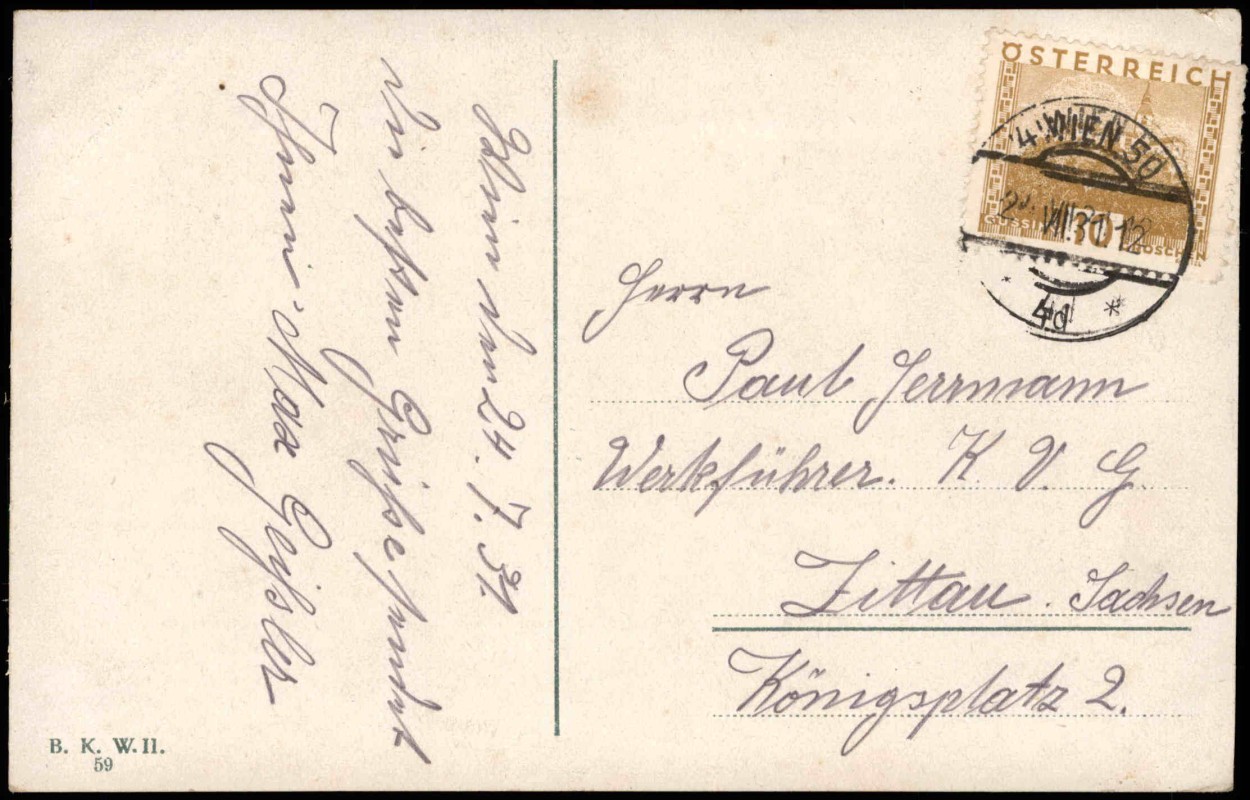 Wien den 24. 7. 31
die besten Grüße sendet
Ihnen Max Geißler
B. K. W. II.
59
ÖSTERREICH
GÜSSING 10 GROSCHEN
4 WIEN 50
VII.31 12
4d
Herrn
Paul Herrmann
Werkführer. K. V. G.
Zittau. Sachsen
Königsplatz 2.